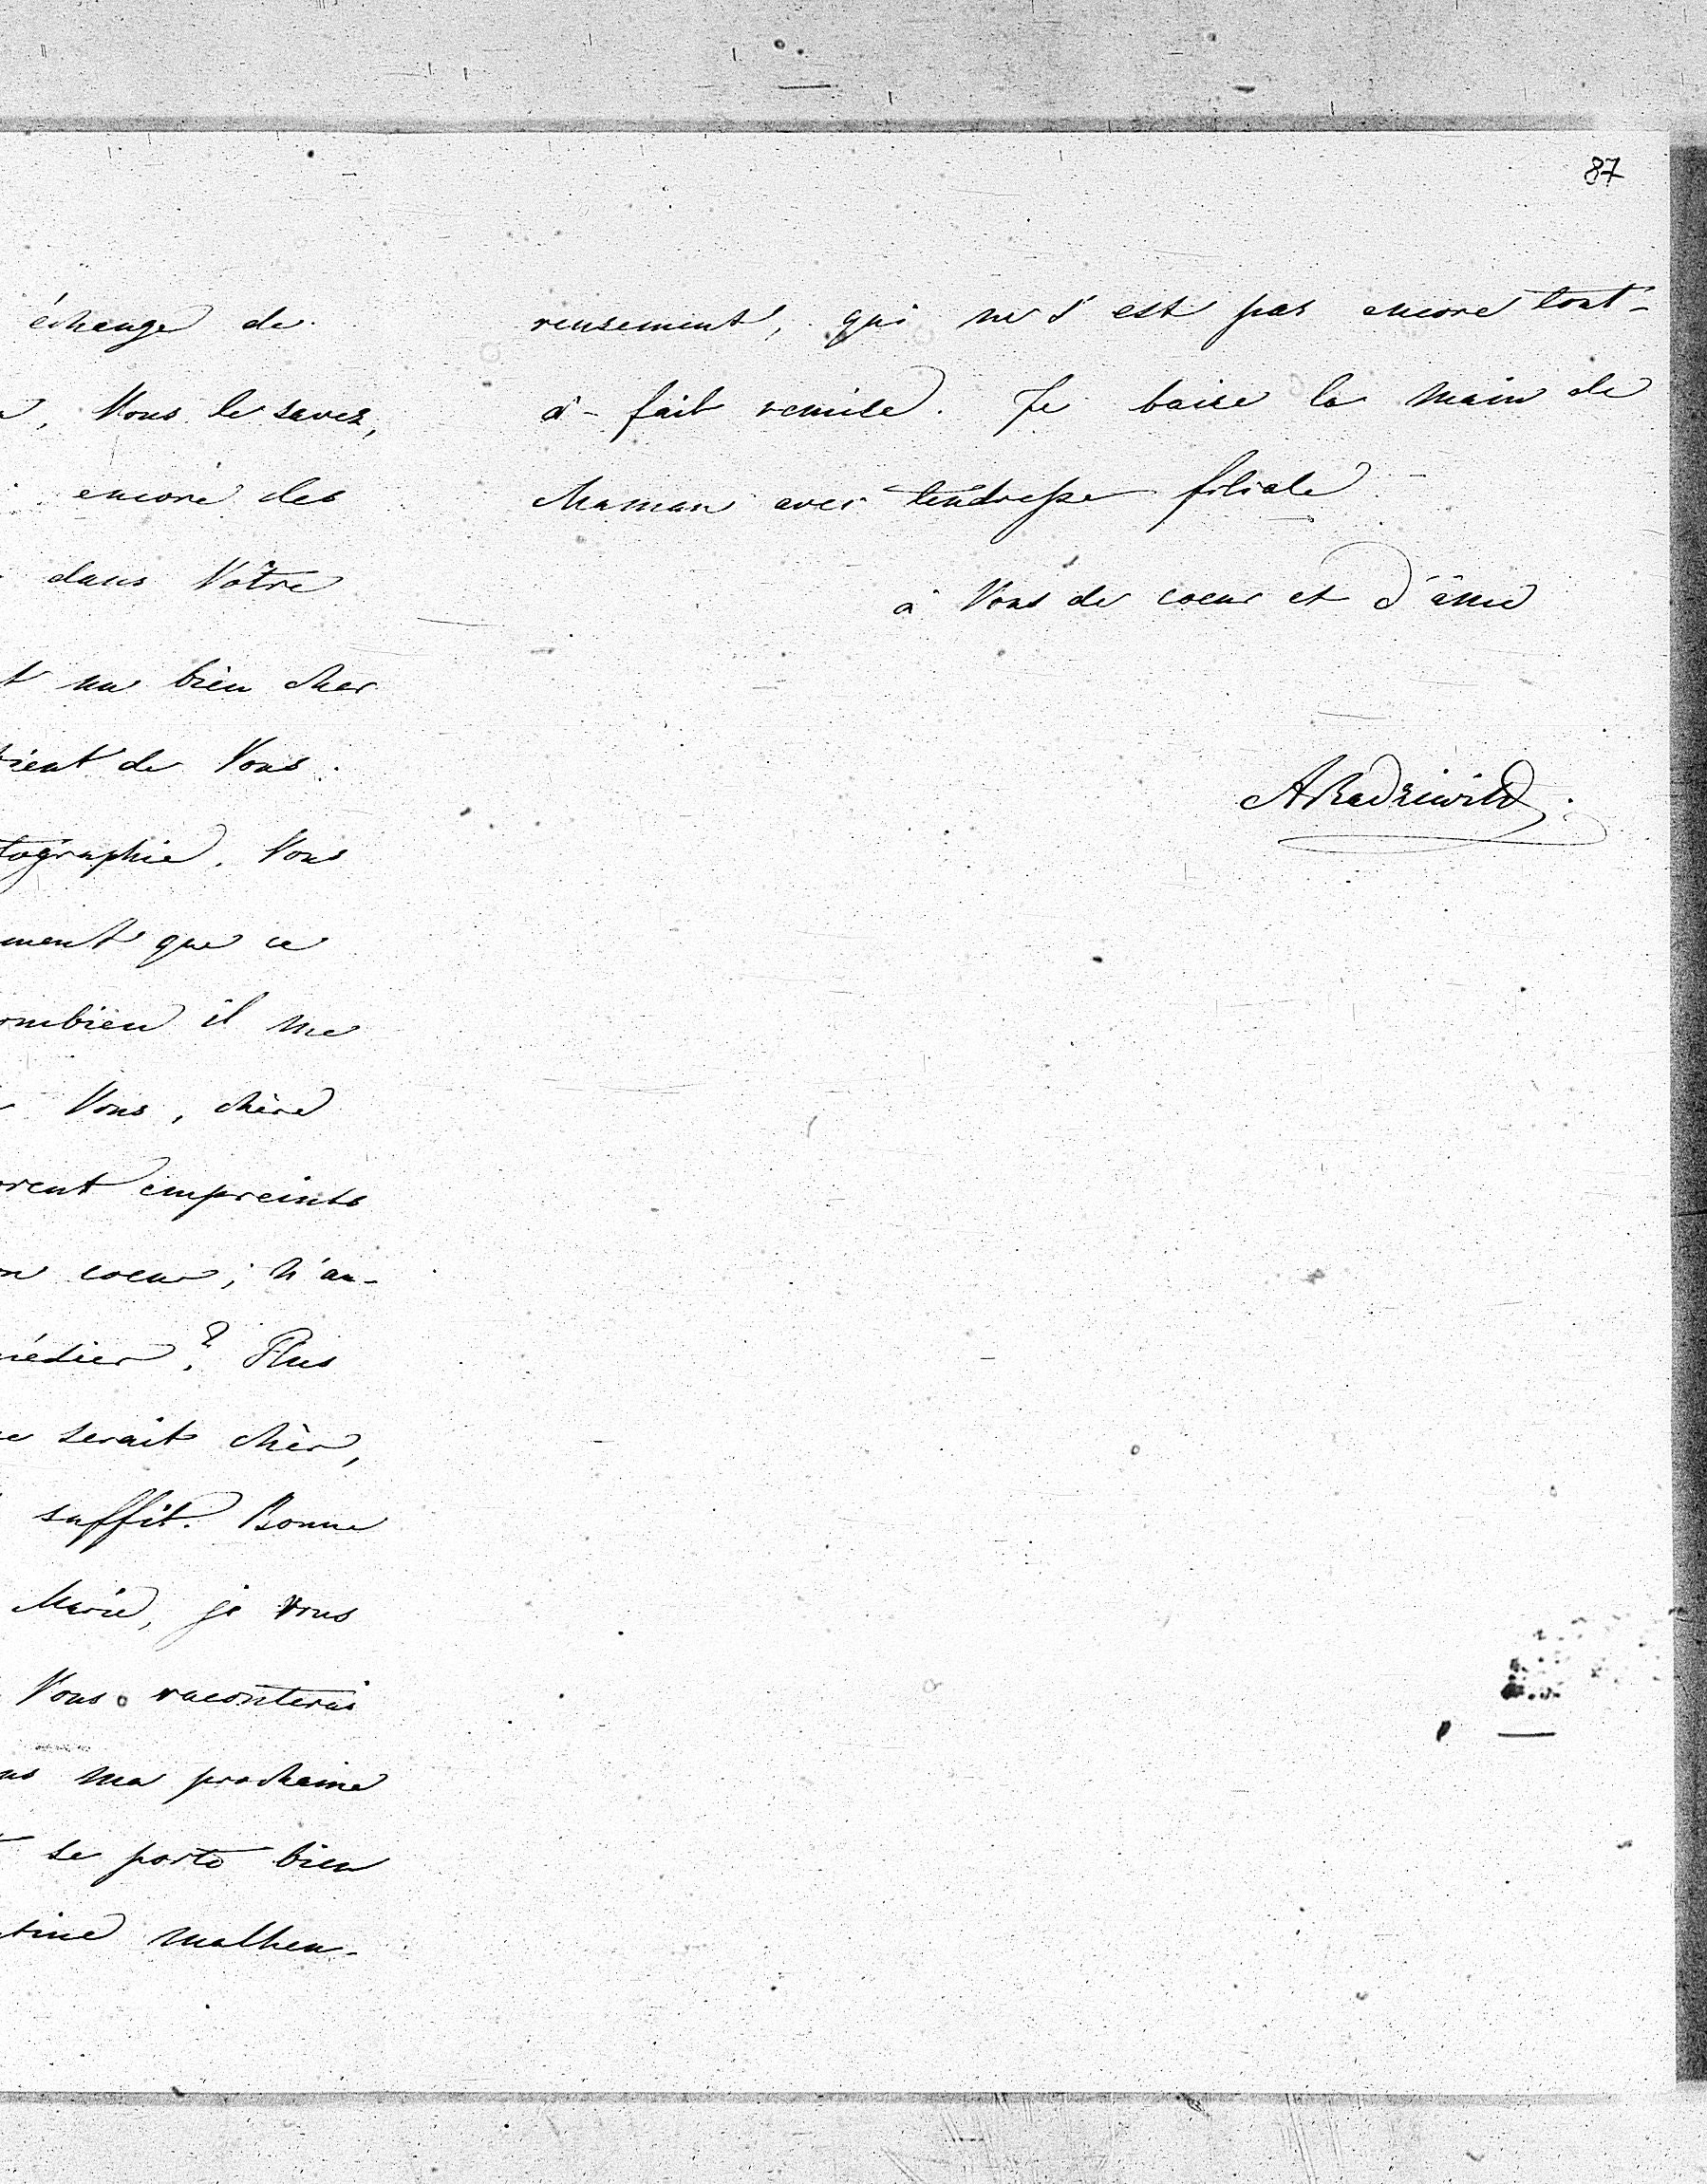 87
échange de
, Vous le savez,
encore des
dans Vôtre
t un bien cher
tient de Vous.
tographie. Vous
ment que ce
ombien il me
Vous, chère
orent empreints
coeur; n'au-
médier? Plus
serait chèr,
suffit. Bonne
Marie, je vous
Vous raconterai
ns ma prochaine
se porte bien
tine malheu-
reusement, qui ne s'est pas encore tout-
à-fait remise. Je baise la main de
Maman avec tendresse filiale
à Vous de coeur et d'âme
ARadziwill.